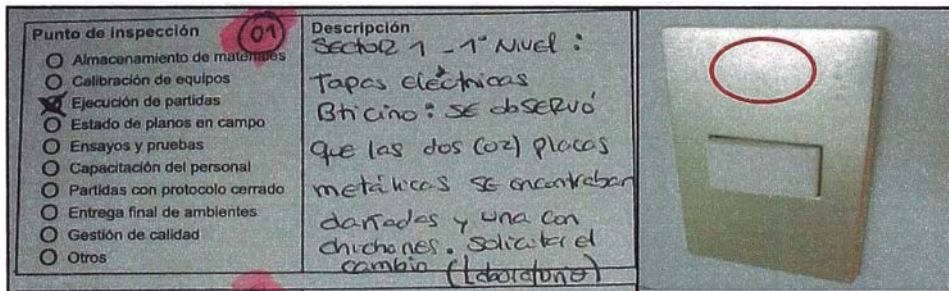 Punto de inspección
01
Almacenamiento de materiales
Calibración de equipos
Ejecución de partidas
Estado de planos en campo
Ensayos y pruebas
Capacitación del personal
Partidas con protocolo cerrado
Entrega final de ambientes
Gestión de calidad
Otros
Descripción
SECTOR 1 - 1° NIVEL :
Tapas eléctricas
Bticino : SE obSERVÓ
que las dos (02) placas
metálicas SE encontraban
dañadas y una con
chichones. Solicitar el
cambio (Laboratorio)